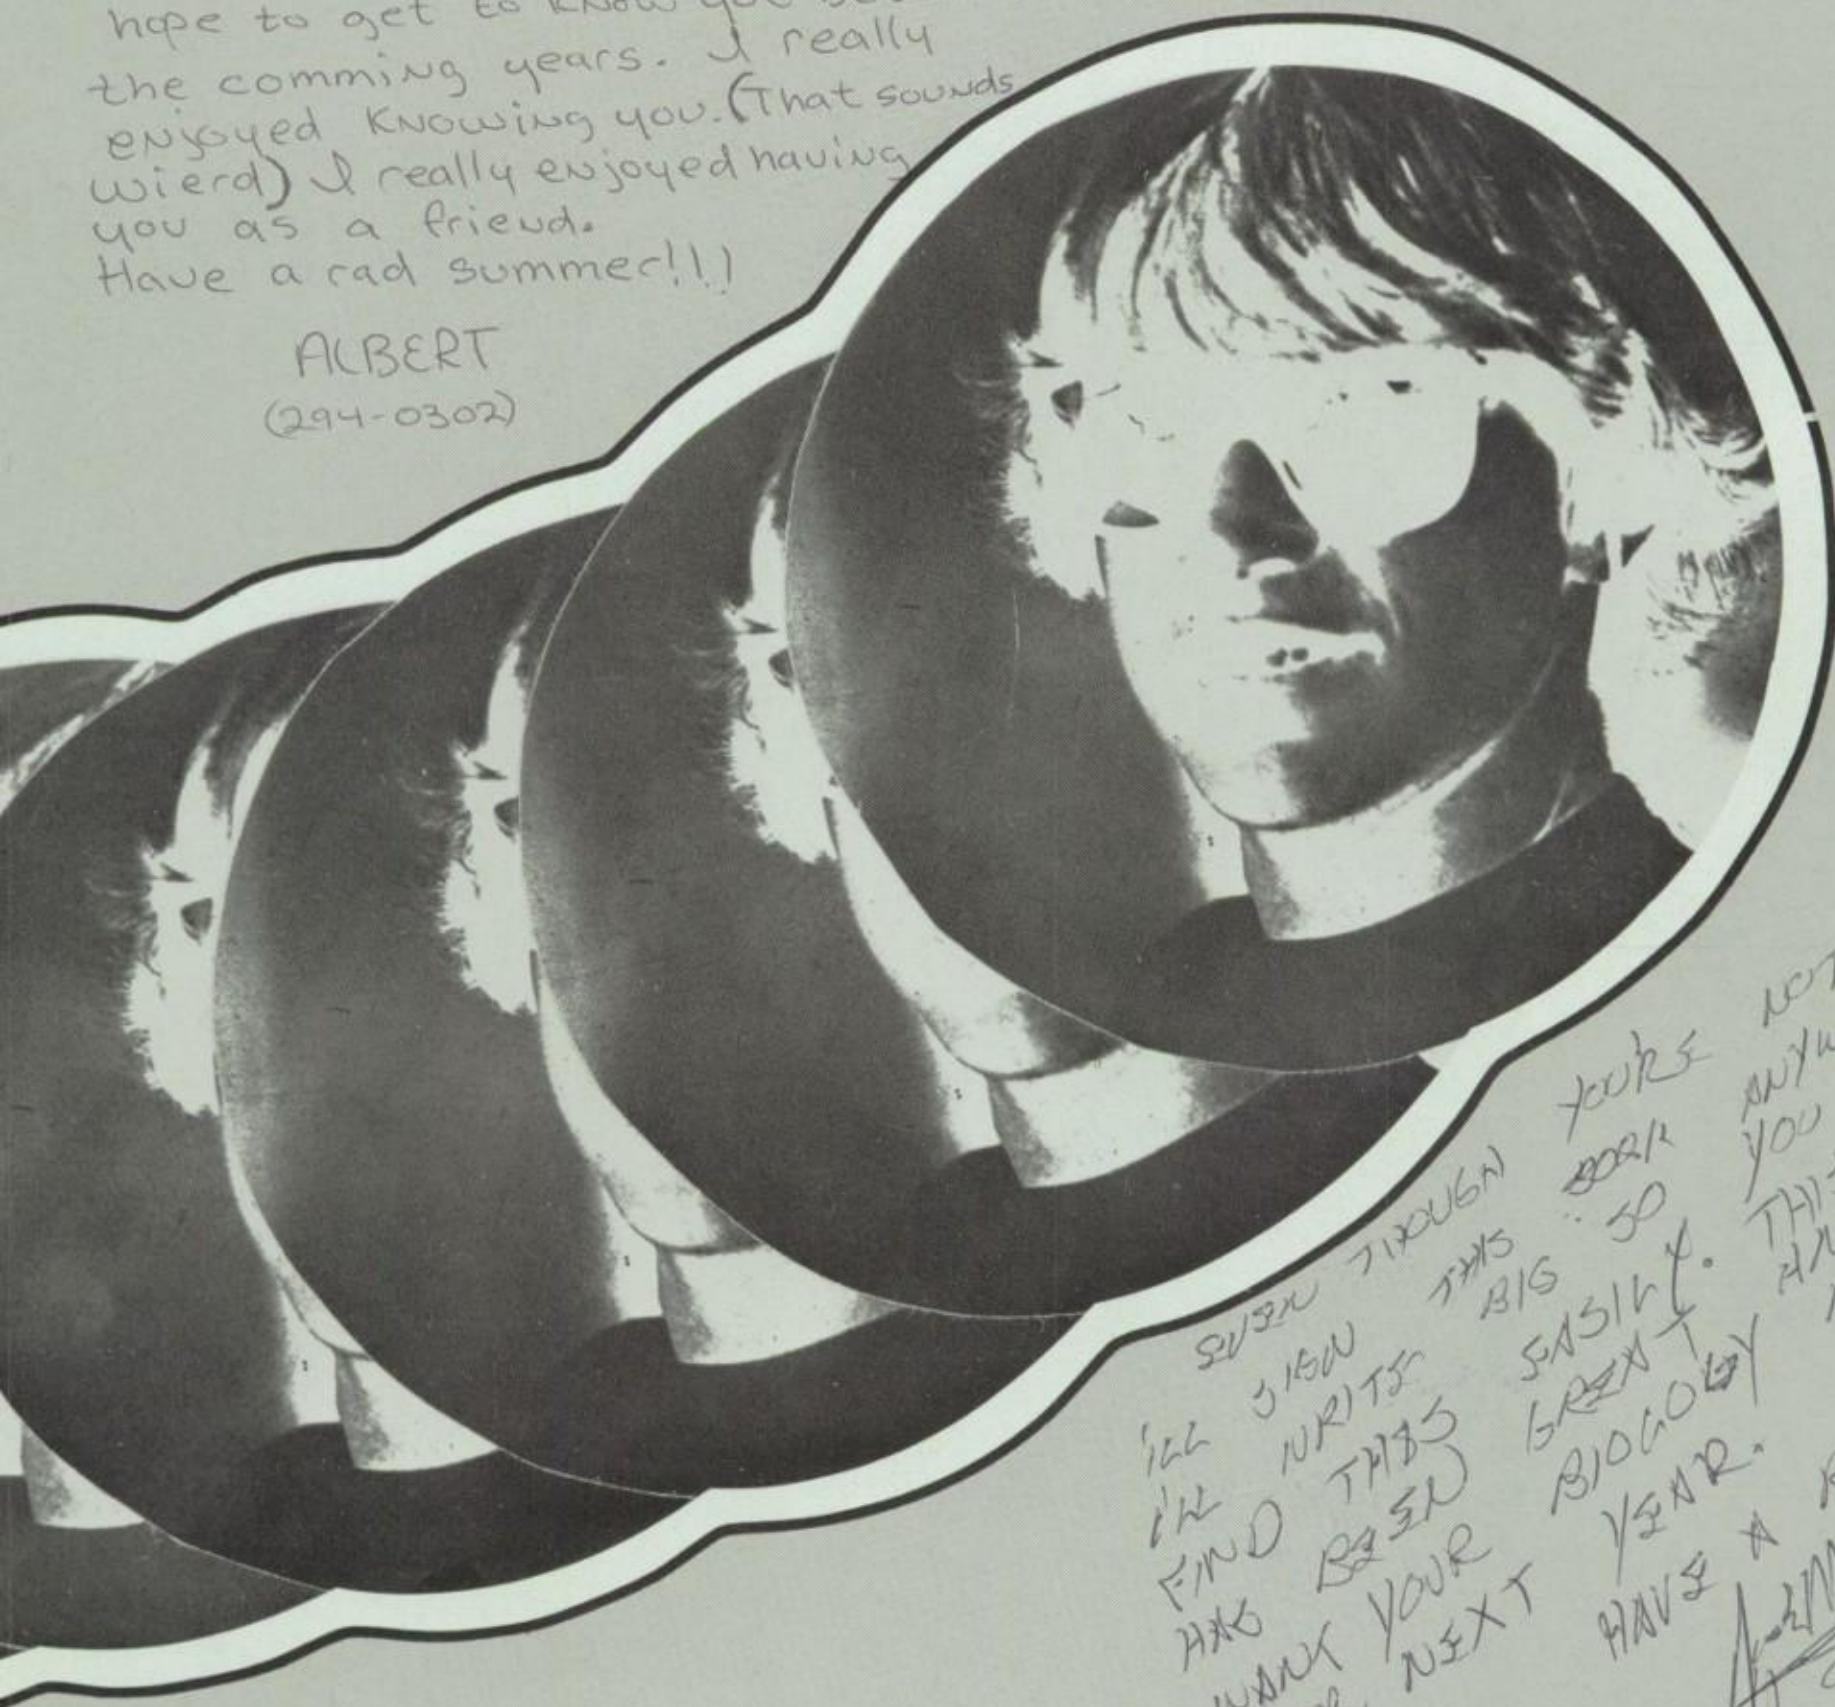 hope to get to know you
the comming years. I really
enjoyed knowing you. (That sounds
wierd) I really enjoyed having
you as a friend.
Have a rad summer!!!
ALBERT
(294-0302)
EVEN THOUGH YOU'RE NOT
I'LL SIGN THIS BOOK
I'LL WRITE BIG SO YOU
FIND THIS EASILY.
HAS BEEN GREAT
YOUR BIOLOGY
NEXT YEAR.
HAVE A